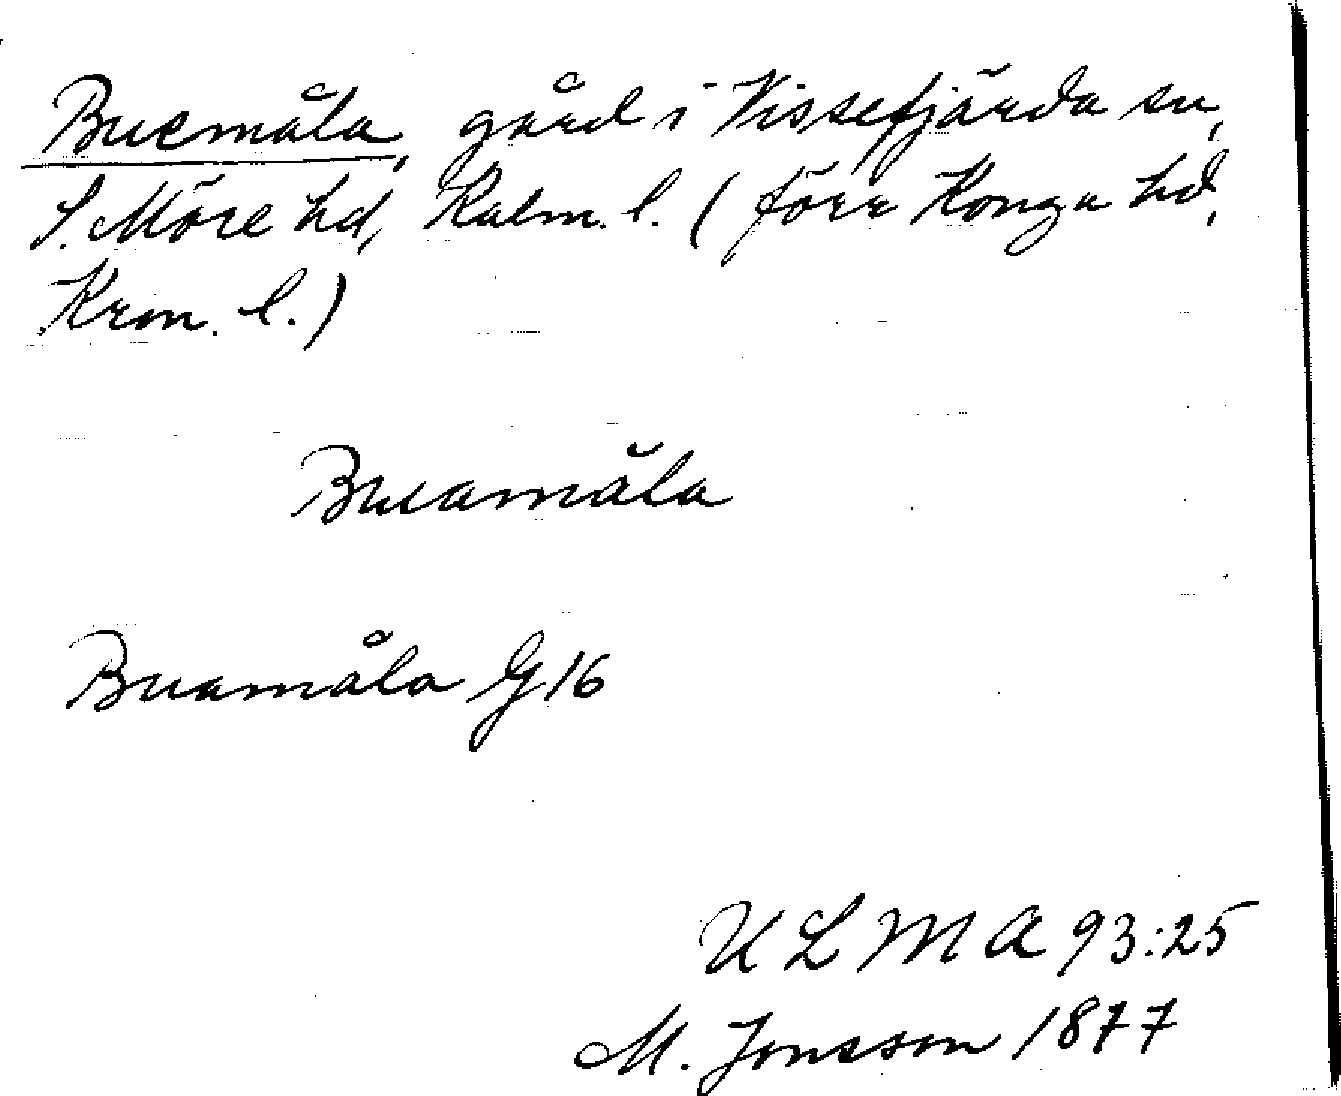 Buemåla, gård i Vissefjärda sn,
S. Möre hd, Kalm. l. (förr Konga hd,
Kron. l.)
Buamåla
Buamåla G 16
ULMA 93:25
M. Jonsson 1877